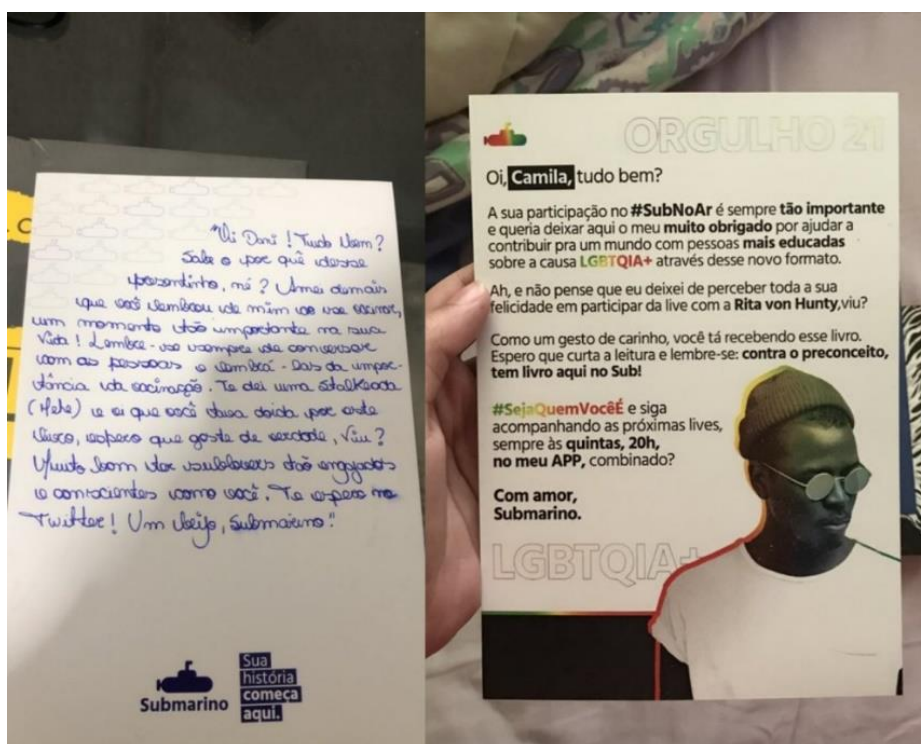 "Oi Dani! Tudo bem?
Sabe o por quê desse
presentinho, né? Amei demais
que você lembrou de mim ao se vacinar,
um momento tão importante na sua
vida! Lembre-se sempre de conversar
com as pessoas e lembrá-las da impor-
tância da vacinação. Te dei uma stalkeada
(Hehe) e vi que você tava doida por este
disco, espero que goste de verdade, viu?
Muito bom ter sublovers tão engajados
e conscientes como você. Te espero no
Twitter! Um beijo, Submarino."
Submarino
Sua
história
começa
aqui.
ORGULHO 21
Oi, Camila, tudo bem?
A sua participação no #SubNoAr é sempre tão importante
e queria deixar aqui o meu muito obrigado por ajudar a
contribuir pra um mundo com pessoas mais educadas
sobre a causa LGBTQIA+ através desse novo formato.
Ah, e não pense que eu deixei de perceber toda a sua
felicidade em participar da live com a Rita von Hunty,viu?
Como um gesto de carinho, você tá recebendo esse livro.
Espero que curta a leitura e lembre-se: contra o preconceito,
tem livro aqui no Sub!
#SejaQuemVocêÉ e siga
acompanhando as próximas lives,
sempre às quintas, 20h,
no meu APP, combinado?
Com amor,
Submarino.
LGBTQIA+